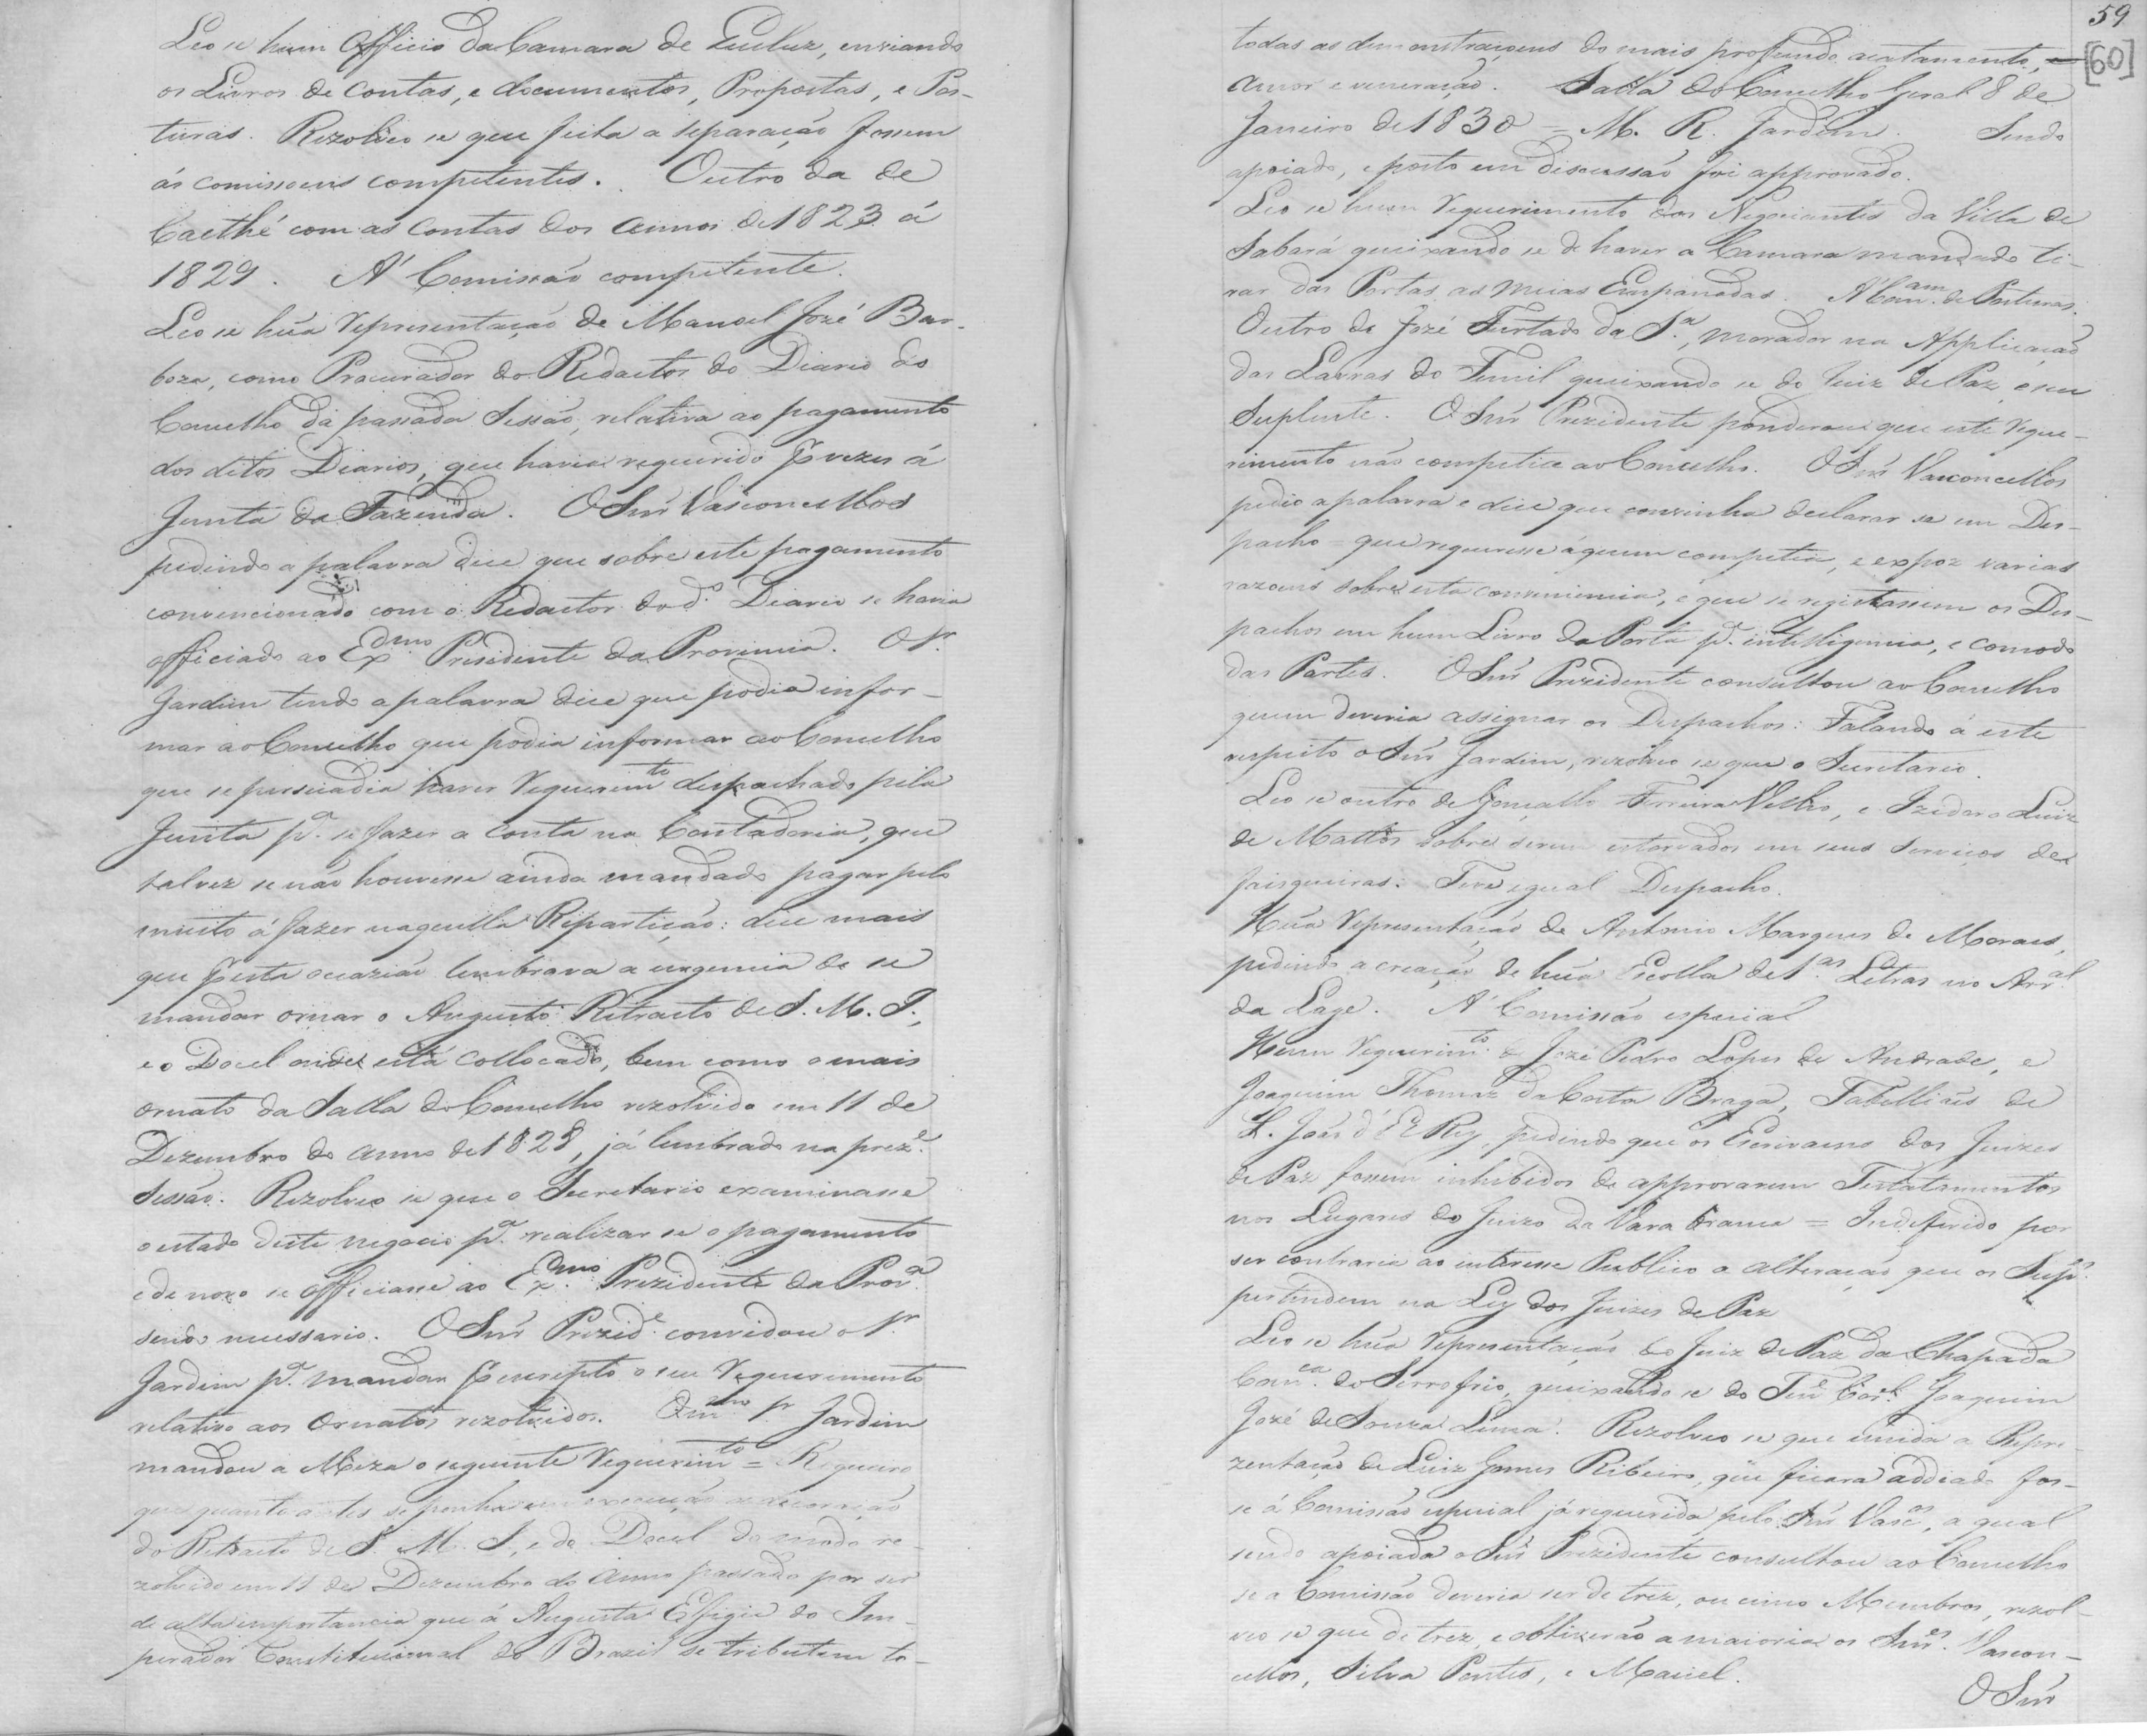 Leo se hum Officio da Camara de Queluz, enviando
os Livros de Contas, e documentos, Propostas, e Pos-
turas. Rezolveo se que feita a separação fossem
ás comissoens competentes. Outro da de
Caethé com as Contas dos annos de 1823 á
1829. A' Comissão competente.
Leo se hũa Representação de Manoel José Bar-
boza, como Procurador do Redactor do Diario do
Conselho da passada Sessão, relativa ao pagamento
dos ditos Diarios, que havia requerido vezes á
Junta da Fazenda. O Snr̃ Vasconcellos
pedindo a palavra dice que sobre este pagamento
convencionado com o Redactor do d.º Diario se havia
officiado ao Ex.mo Presidente da Provincia. O Sr.
Jardim tendo a palavra dice que podia infor-
mar ao Conselho que podia informar ao Conselho
que se persuadia haver Requerim.to despachado pela
Junta p.ª se fazer a conta na Contadoria, que
talvez se não houvesse ainda mandado pagar pelo
muito á fazer naquella Repartição: dice mais
que esta occazião lembrava a urgencia de se
mandar ornar o Augusto Retracto de S. M. I.,
e o Docel onde está collocado, bem como o mais
ornato da Salla do Conselho rezolvido em 11 de
Dezembro do anno de 1828, já lembrado na prez.e
Sessão. Rezolveo se que o Secretario examinasse
o estado deste negocio p.ª realizar se o pagamento
e de novo se officiasse ao Ex.mo Prezidente da Prov.ª
sendo necessario. O Snr̃ Prezid.e convidou o Sr.
Jardim p.ª mandar escripto o seu Requerimento
relativo aos Ornatos rezolvidos. O m.mo Sr. Jardim
mandou a Meza o seguinte Requerim.to = Requeiro
que quanto antes se ponha em execução a decoração
do Retracto de S. M. I., e do Docel do modo re-
zolvido em 11 de Dezembro do anno passado por ser
de alta importancia que á Augusta Effigie do Im-
perador Constitucional do Brazil se tributem to-
59
[60]
todas as demonstraçoens do mais profundo acatamento,
amor e veneração. Salla do Conselho Geral 8 de
Janeiro de 1830 = M. R. Jardim. Sendo
apoiado, e posto em discussão foi approvado.
Leo se hum Requerimento dos Negociantes da Villa de
Sabará queixando se de haver a Camara mandado ti-
rar das Portas as meias Empanadas. A' Com.am de Posturas.
Outro de José Furtado da S.ª, morador na Applicação
das Lavras do Funil queixando se do Juiz de Paz, e seu
Suplente. O Snr̃ Prezidente ponderou que este Reque-
rimento não competia ao Conselho. O Snr̃ Vasconcellos
pedio a palavra e dice que convinha declarar se em Des-
pacho = que requeresse á quem competia, e expoz varias
razoens sobre esta conveniencia, e que se registassem os Des-
pachos em hum Livro da Porta p.ª intelligencia, e comodo
das Partes. O Snr̃ Prezidente consultou ao Conselho
quem deveria assignar os Despachos: Falando á este
respeito o Snr̃ Jardim, rezolveo se que o Secretario.
Leo se outro de Gonçallo Ferreira Velho, e Izidoro Luiz
de Mattos sobre serem estorvados em seus Serviços de
faisqueiras: Teve egual Despacho.
Hũa Representação de Antonio Marques de Moraes,
pedindo a creação de hũa Escolla de 1.as Letras no Arr.al
da Lage. A' Comissão especial
Hum Requerim.to de José Pedro Lopes de Andrade, e
Joaquim Thomaz da Costa Braga, Tabelliães de
S. João d'El Rey, pedindo que os Escrivaens dos Juizes
de Paz fossem inhibidos de approvarem Testatmentos
nos Lugares do Juizo da Vara branca = Indeferido por
ser contraria ao interesse Publico a alteração que os Sup.es
pertendem na Ley dos Juizes de Paz
Leo se hũa Representação do Juiz de Paz da Chapada
Com.ca do Serro frio, queixando se do Ten.e Cor.el Joaquim
José de Souza Lima. Rezolveo se que unida a Repre-
zentação de Luiz Gomes Ribeiro, que ficara addiada fos-
se á Comissão especial já requerida pelo Snr̃ Vasc.os, a qual
sendo apoiada o Snr̃ Prezidente consultou ao Conselho
se a Comissão deveria ser de trez, ou cinco Membros, rezol-
veo se que de trez, e obtiverão a maioria os Snr.es Vascon-
cellos, Silva Pontes, e Maciel.
O Snr̃